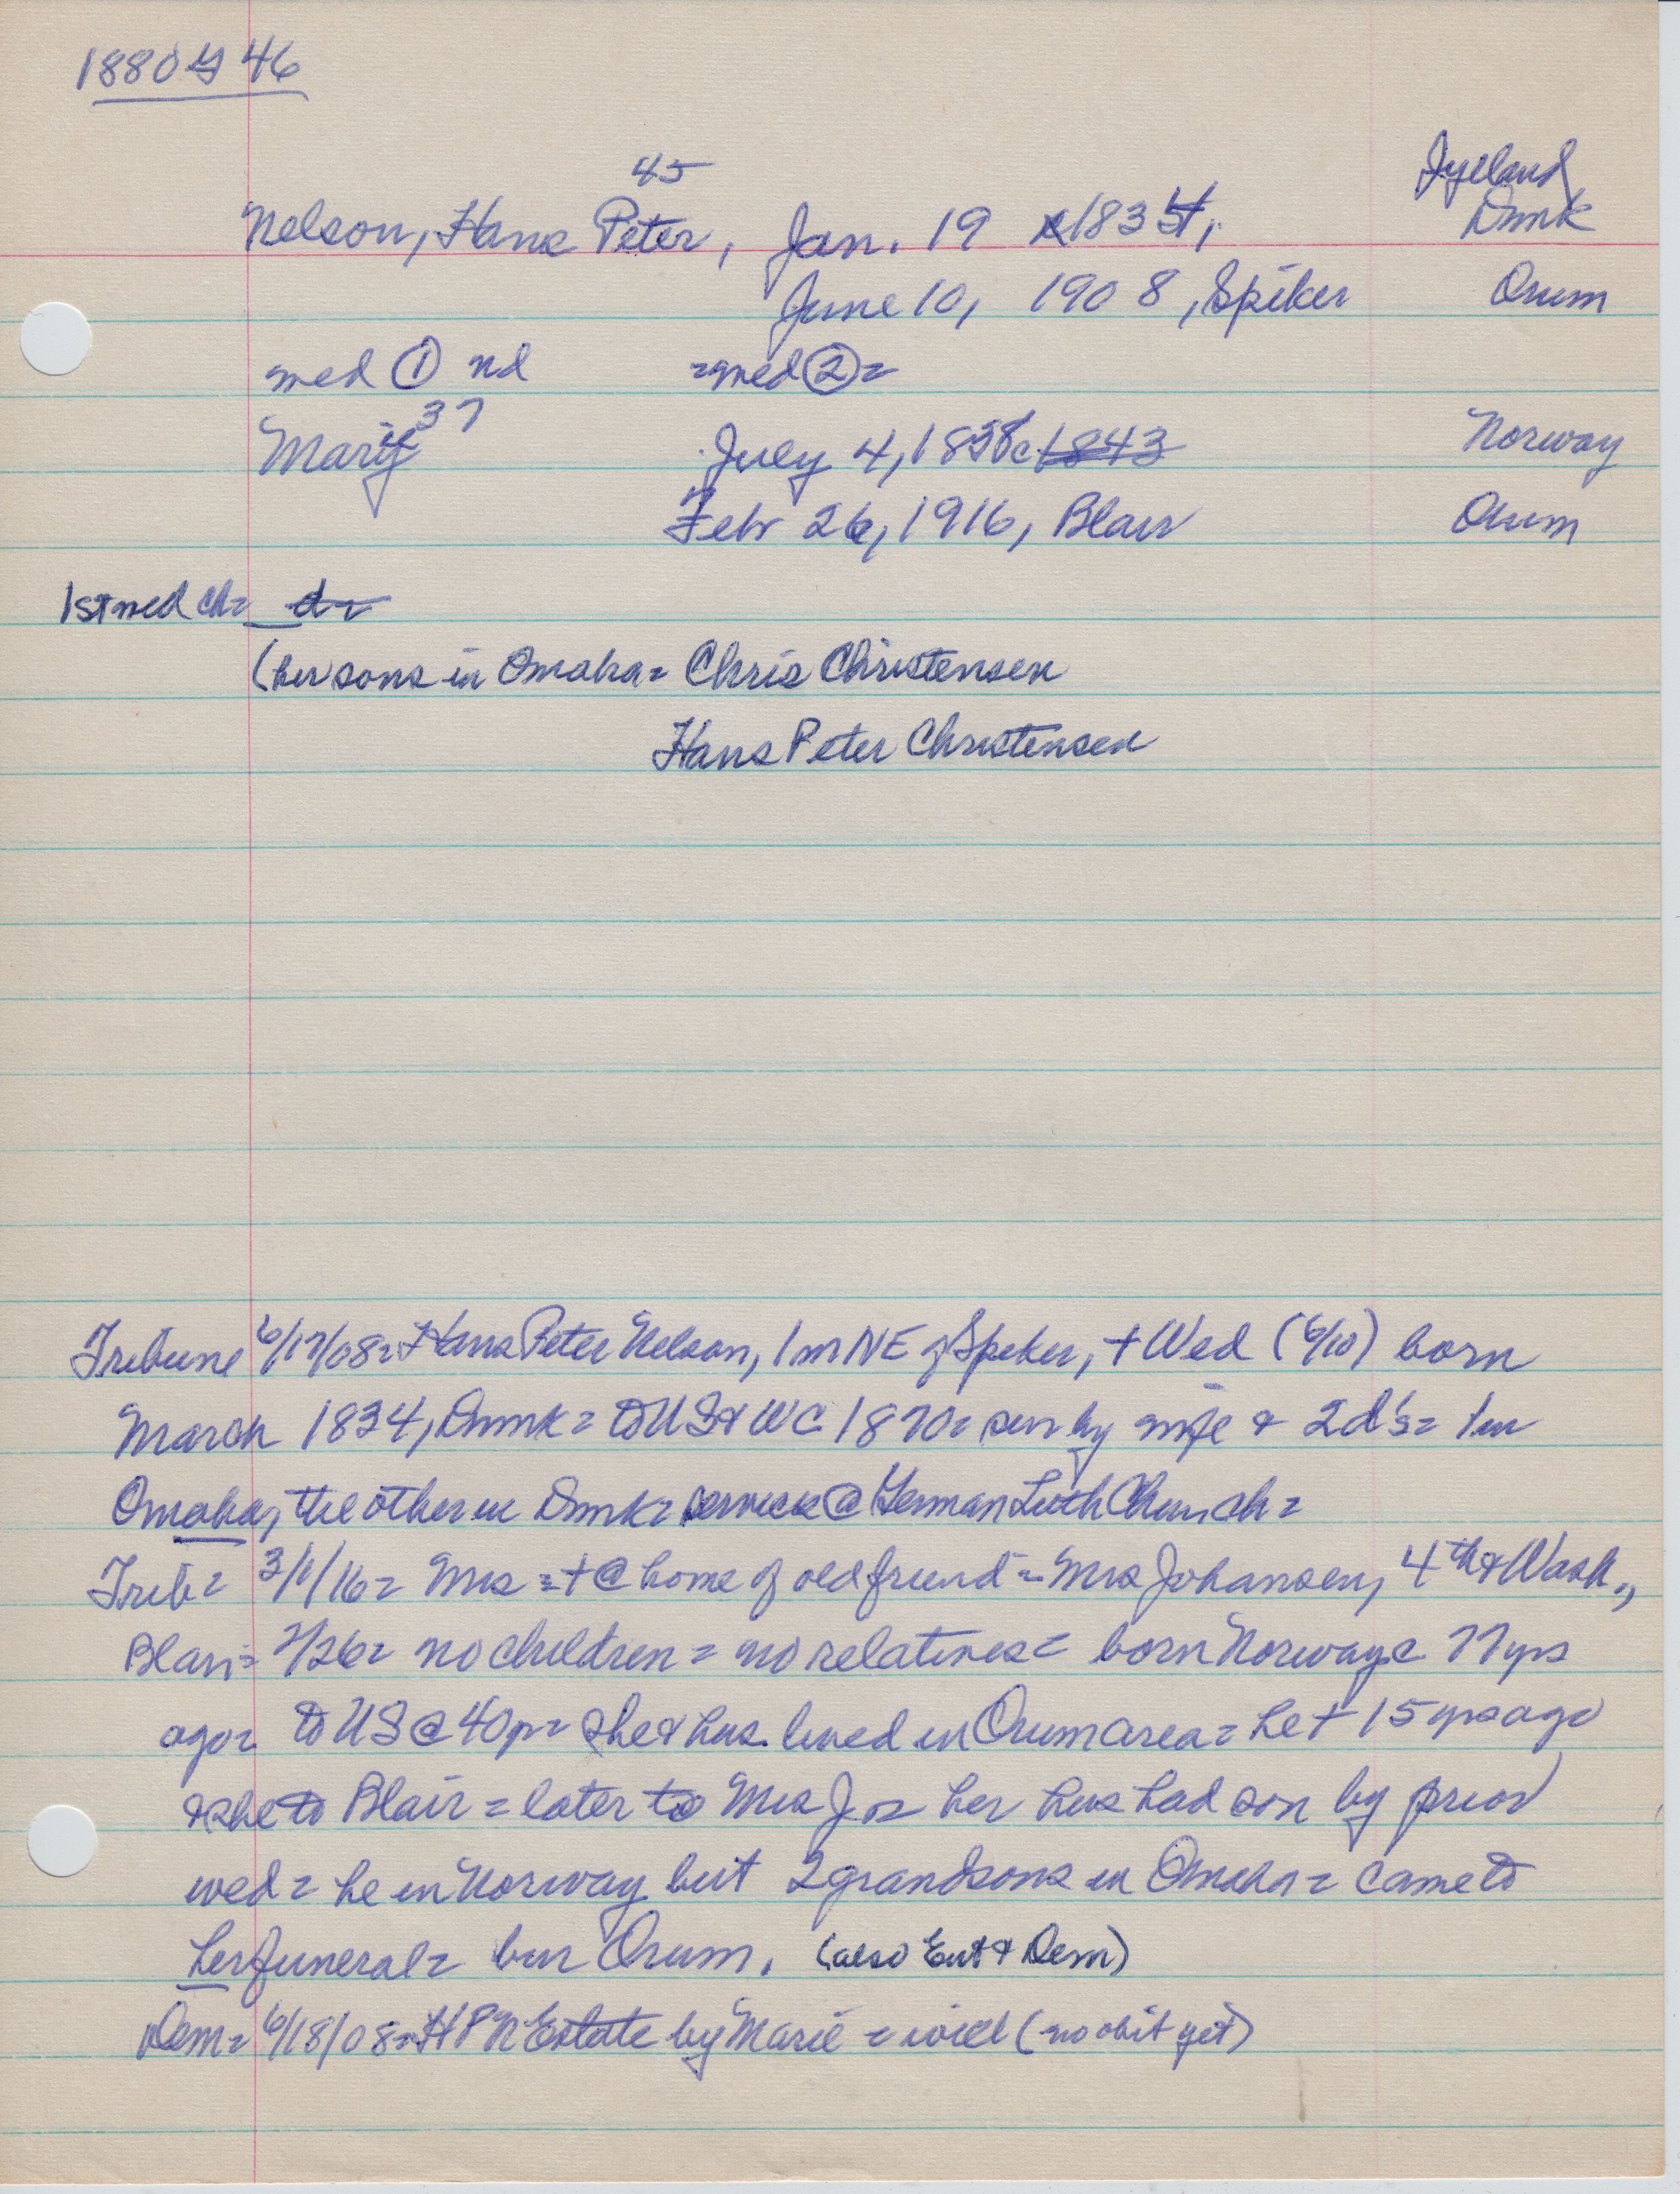 1880 46
45
Jyeland
Nelson, Hans Peter, Jan. 19 1834, Dmk
June 10, 1908, Spiker Orum
wed ① nd =wed ② =
37
Marie July 4, 1838 c 1843 Norway
Febr 26, 1916, Blair Orum
1st wed ch= d=
(her sons in Omaha= Chris Christensen
Hans Peter Christensen
Tribune 6/17/08= Hans Peter Nelson, 1 m NE of Spiker, + Wed (6/10) born
March 1834, Dnmk= to US & WC 1870= surv by wife & 2 d's= 1 in
Omaha, the other in Dnmk= services @ German Luth Church=
Trib= 3/1/16= Mrs =+ @ home of old friend = Mrs Johansen, 4th & Wash.,
Blair= 2/26= no children= no relatives= born Norway c 77 yrs
ago= to US @ 40 yr= she & hus. lived in Orum area= he + 15 yrs ago
& she to Blair= later to Mrs J= her hus had son by prior
wed= he in Norway but 2 grandsons in Omaha= came to
her funeral= bur Orum. (also Ent & Dem)
Dem= 6/18/08= HPN Estate by Marie = will (no obit yet)